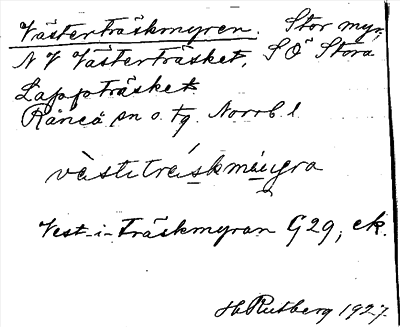 Västerträskmyren. Stor myr,
N V Västerträsket, S Ö Stora
Lappträsket
Råneå sn o. tg. Norrb. l
västiträskmúyra
Vest-i-träskmyran G29, ek.
H. Rutberg 1927.